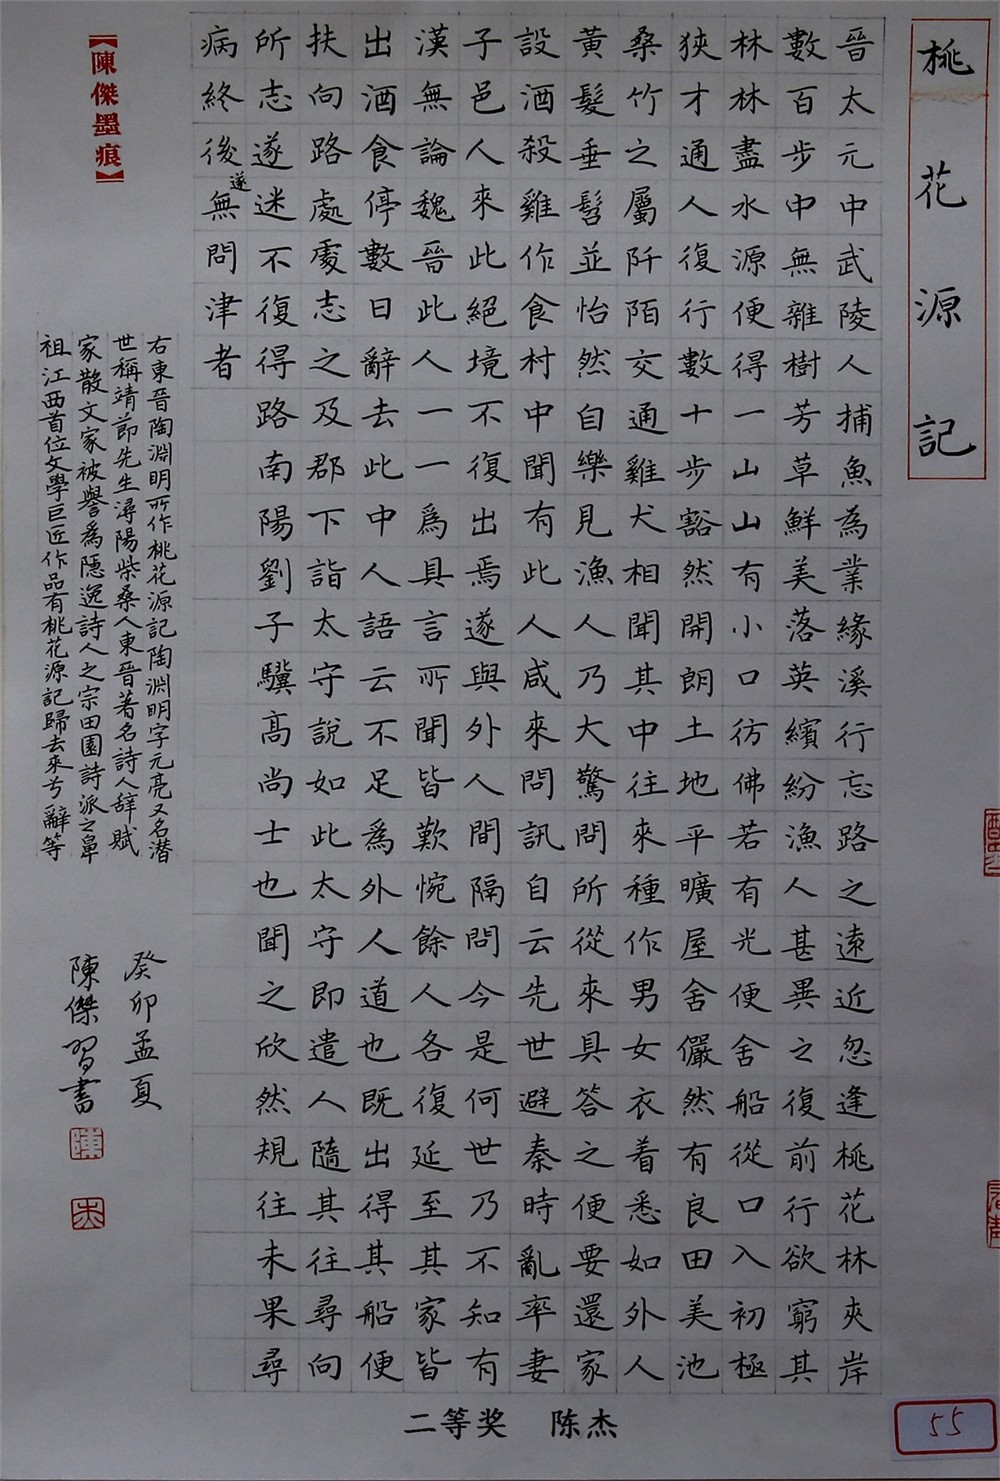 桃花源記
晉太元中武陵人捕魚為業緣溪行忘路之遠近忽逢桃花林夾岸
數百步中無雜樹芳草鮮美落英繽紛漁人甚異之復前行欲窮其
林林盡水源便得一山山有小口彷佛若有光便舍船從口入初極
狹才通人復行數十步豁然開朗土地平曠屋舍儼然有良田美池
桑竹之屬阡陌交通雞犬相聞其中往來種作男女衣着悉如外人
黃髮垂髫並怡然自樂見漁人乃大驚問所從來具答之便要還家
設酒殺雞作食村中聞有此人咸來問訊自云先世避秦時亂率妻
子邑人來此絕境不復出焉遂與外人間隔問今是何世乃不知有
漢無論魏晉此人一一爲具言所聞皆歎惋餘人各復延至其家皆
出酒食停數日辭去此中人語云不足爲外人道也既出得其船便
扶向路處處志之及郡下詣太守說如此太守即遣人隨其往尋向
所志遂迷不復得路南陽劉子驥高尚士也聞之欣然規往未果尋
病終後遂無問津者
右東晉陶淵明所作桃花源記陶淵明字元亮又名潜
世稱靖節先生潯陽柴桑人東晉著名詩人辞賦
家散文家被譽爲隱逸詩人之宗田園詩派之鼻
祖江西首位文學巨匠作品有桃花源記歸去來兮辭等
癸卯孟夏
陳傑習書
【陳傑墨痕】
二等奖 陈杰
55